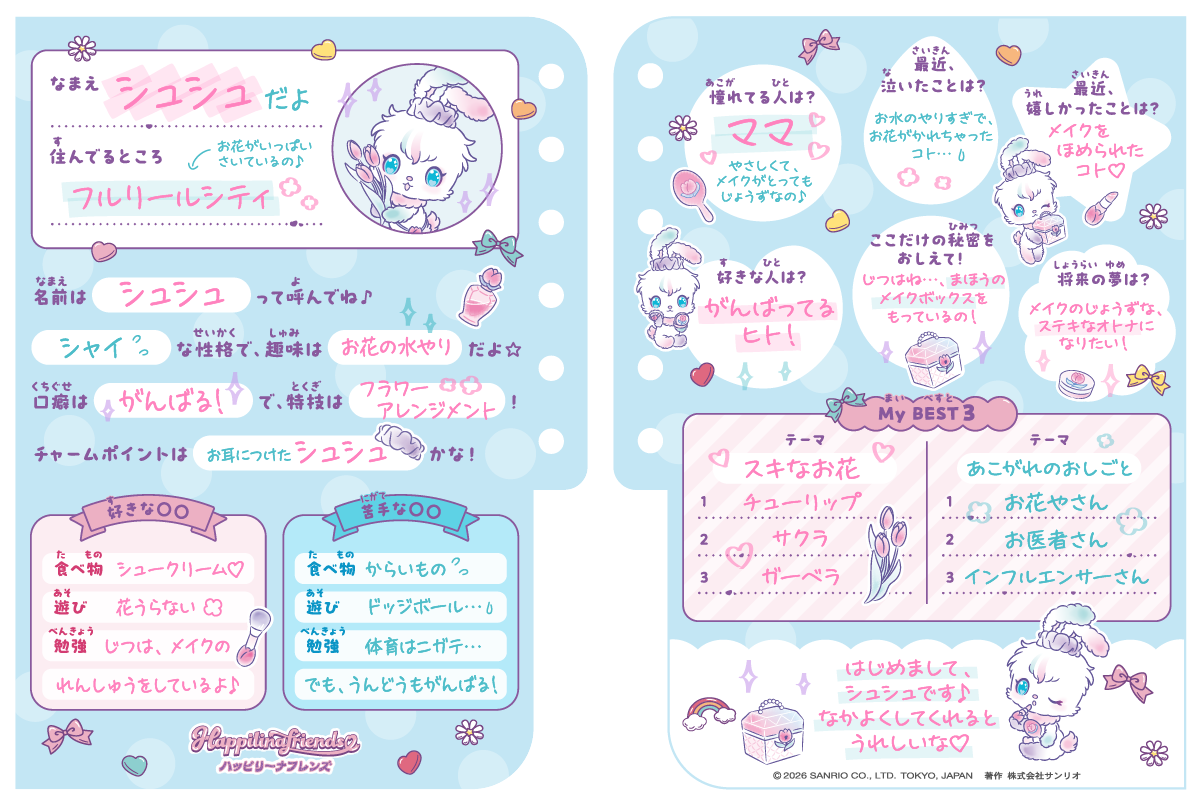 なまえ シュシュ だよ
住んでるところ お花がいっぱい
さいているの♪
フルリールシティ
名前は シュシュ って呼んでね♪
シャイ な性格で、趣味は お花の水やり だよ☆
口癖は がんばる! で、特技は フラワー
アレンジメント !
チャームポイントは お耳につけた シュシュ かな!
好きな〇〇
食べ物 シュークリーム♡
遊び 花うらない
勉強 じつは、メイクの
れんしゅうをしているよ♪
苦手な〇〇
食べ物 からいもの
遊び ドッジボール…
勉強 体育はニガテ…
でも、うんどうもがんばる!
Happilinafriends
ハッピリーナフレンズ
憧れてる人は?
ママ
やさしくて、
メイクがとっても
じょうずなの♪
最近、
泣いたことは?
お水のやりすぎで、
お花がかれちゃった
コト…
最近、
嬉しかったことは?
メイクを
ほめられた
コト♡
好きな人は?
がんばってる
ヒト!
ここだけの秘密を
おしえて!
じつはね…、まほうの
メイクボックスを
もっているの!
将来の夢は?
メイクのじょうずな、
ステキなオトナに
なりたい!
My BEST 3
テーマ
スキなお花
1 チューリップ
2 サクラ
3 ガーベラ
テーマ
あこがれのおしごと
1 お花やさん
2 お医者さん
3 インフルエンサーさん
はじめまして、
シュシュです♪
なかよくしてくれると
うれしいな♡
© 2026 SANRIO CO., LTD. TOKYO, JAPAN 著作 株式会社サンリオ